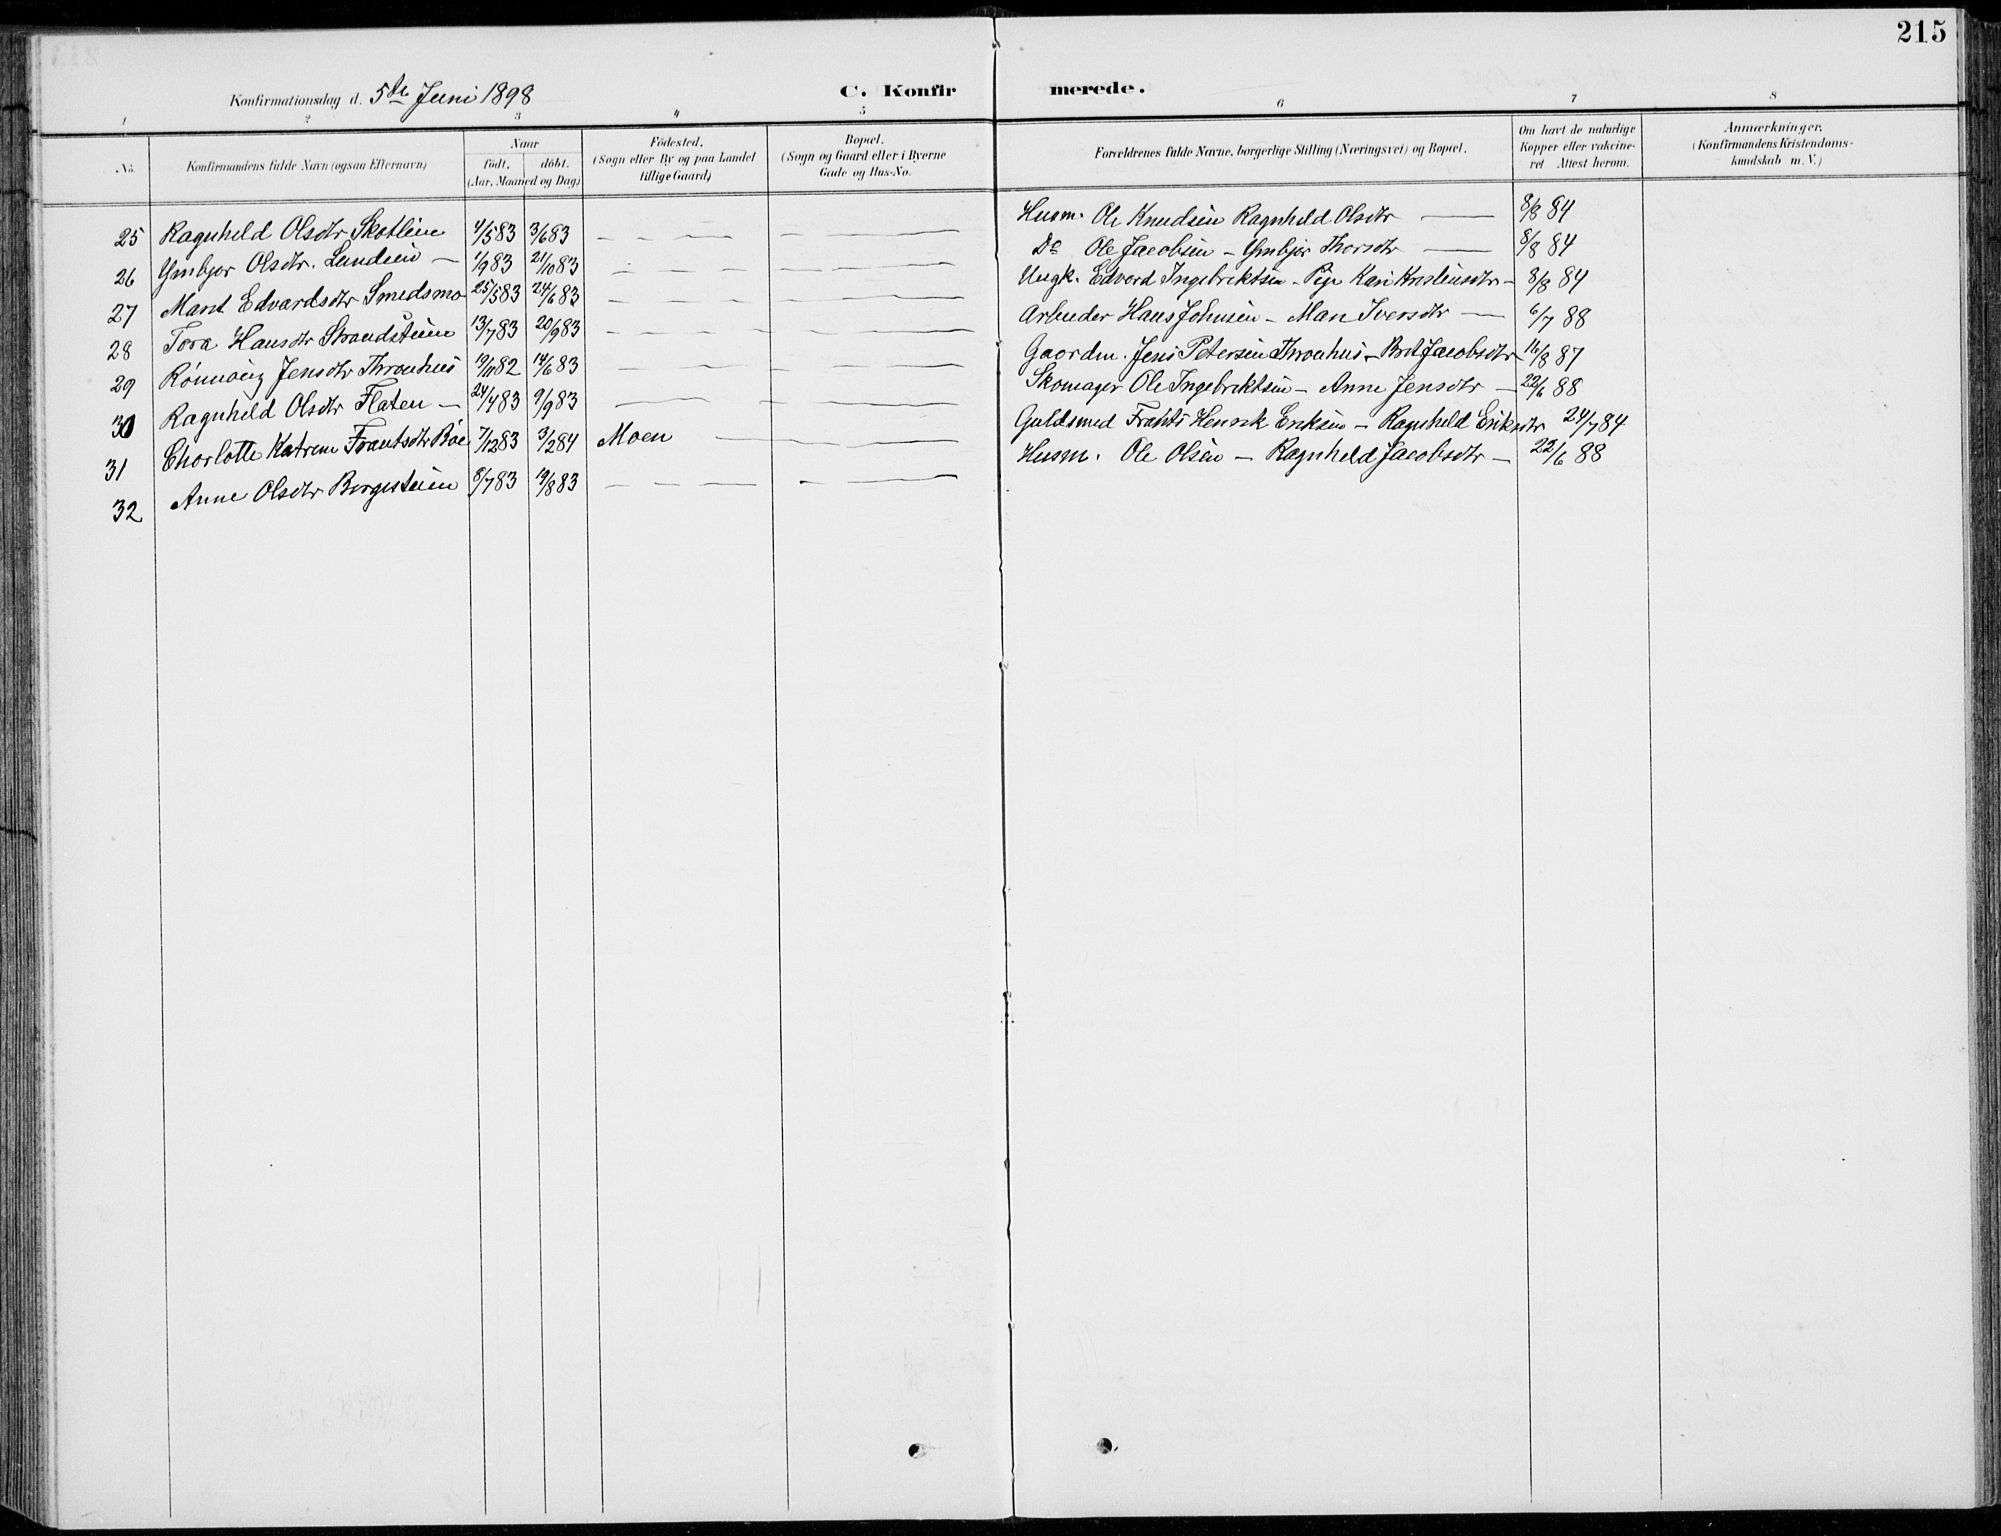 215
Konfirmationsdag d. 5te Juni 1898
C. Konfirmerede.
1 2 3 4 5 6 7 8
No.
Konfirmandens fulde Navn (ogsaa Efternavn)
Naar
født. døbt.
(Aar, Maaned og Dag)
Fødested.
(Sogn eller By og paa Landet
tillige Gaard)
Bopæl.
(Sogn og Gaard eller i Byerne
Gade og Hus-No.
Forældrenes fulde Navne, borgerlige Stilling (Næringsvei) og Bopæl.
Om havt de naturlige
Kopper eller vakcine-
ret Attest herom.
Anmærkninger.
(Konfirmandens Kristendoms-
kundskab m. V.)
25 Ragnheld Olsdtr Skotlien 4/5 83 3/6 83 — — — — Husm. Ole Knudsen Ragnheld Olsdtr — 8/8 84
26 Ymbjør Olsdtr. Lundein — 1/9 83 21/10 83 — — — — Do Ole Jacobsen – Ymbjør Thorsdtr — 8/8 84
27 Marit Edvardsdtr Smedsmo 25/5 83 24/6 83 — — — — Ungk. Edvard Ingebriktsen – Pige Kari Kristensdtr – 8/8 84
28 Tora Hansdtr Strandsteien 13/7 83 20/9 83 — — — — Arbeider Hans Johnsen – Mari Iversdtr — 6/7 88
29 Rønnaug Jensdtr Thronhus 19/11 82 14/6 83 — — — — Gaardm. Jens Petersen Thronhus – Brit Jacobsdtr 16/8 87
30 Ragnheld Olsdtr Flaten — 24/7 83 9/9 83 — — — — Skomager Ole Ingebriktsen – Anne Jensdtr — 22/6 88
31 Chorlotte Katrine Frantsdtr Bøe 7/12 83 3/2 84 Moen — — — Guldsmed Frants Henrik Eriksen – Ragnheld Eriksdtr 24/7 84
32 Anne Olsdtr Borgesteien 8/7 83 19/8 83 — — — — Husm. Ole Olsen — Ragnheld Jacobsdtr — 22/6 88